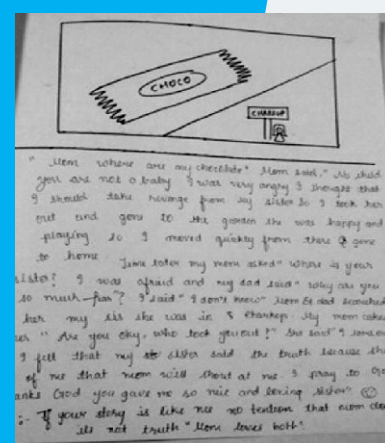 CHOCO
CHARKOP
" Mom where are my chocolate" Mom said, " No child
you are not a baby I was very angry I thought that
I should take revenge from my sister so I took her
out and gone to the garden she was happy and
playing so I moved quickly from there & gone
to home
Some later my mom asked " where is your
sister? I was afraid and my dad said " why are you
so much fear"? I said " I don't know" Mom & dad searched
her my sis she was in Charkop. My mom
" Are you oky, who took you out?" She said
I fell that my sister said the truth because
of me that mom will shout at me. I pray to
God you gave me so nice and loving sister"
:- If your story is like me no that mom
its not truth "Mom loves both"